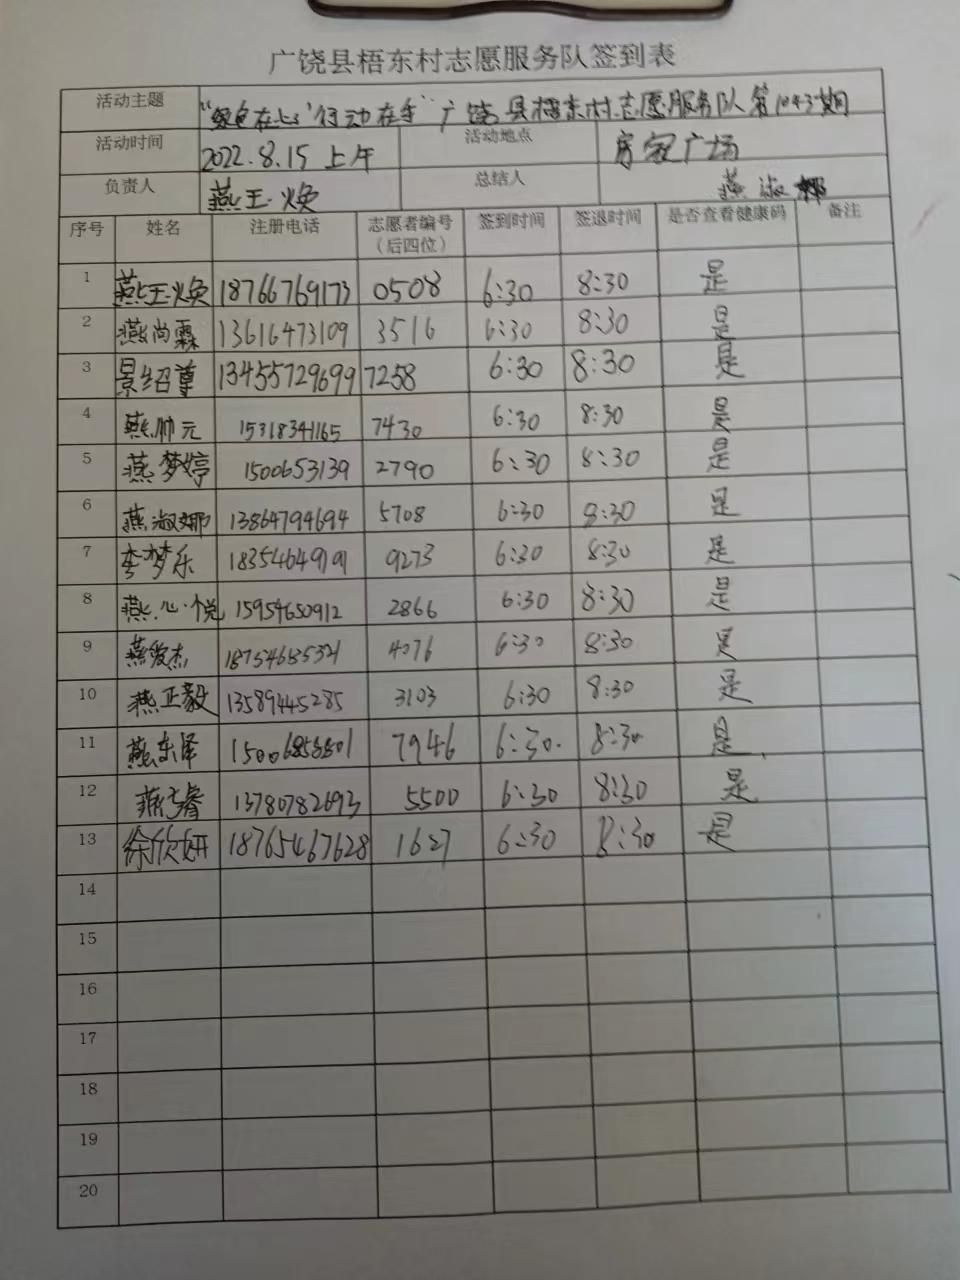 广饶县梧东村志愿服务队签到表
活动主题 “绿色在心 行动在手” 广饶县梧东村志愿服务队第1043期
活动时间 2022.8.15 上午 活动地点 房家广场
负责人 燕玉焕 总结人 燕淑娜
序号 姓名 注册电话 志愿者编号（后四位） 签到时间 签退时间 是否查看健康码 备注
1 燕玉焕 18766769173 0508 6:30 8:30 是
2 燕尚霖 13616473109 3516 6:30 8:30 是
3 景绍尊 13455729699 7258 6:30 8:30 是
4 燕帅元 15318341165 7430 6:30 8:30 是
5 燕梦婷 1500653139 2790 6:30 8:30 是
6 燕淑娜 13864794694 5708 6:30 8:30 是
7 李梦乐 18354649191 9273 6:30 8:30 是
8 燕心悦 15954650912 2866 6:30 8:30 是
9 燕俊杰 4076 6:30 8:30 是
10 燕正毅 13589445285 3103 6:30 8:30 是
11 燕东泽 7946 6:30 8:30 是
12 13780782693 5500 6:30 8:30 是
13 徐欣妍 18765467628 1627 6:30 8:30 是
14
15
16
17
18
19
20